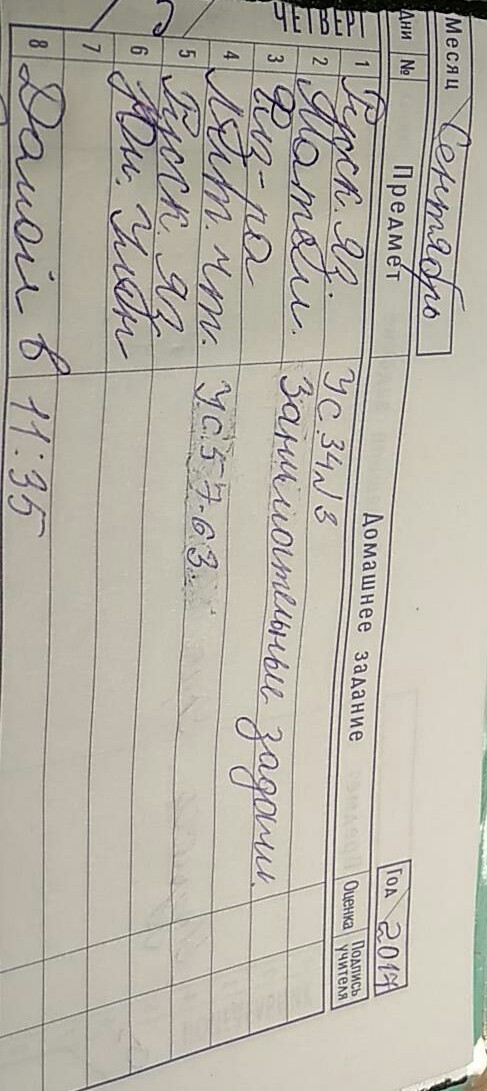 Месяц Сентябрь Год 2017
Дни № Предмет Домашнее задание Оценка Подпись учителя
ЧЕТВЕРГ
1 Русск. яз. УС 34 N 3
2 Матем. Занимательные задачи.
3 Физ-ра
4 Лит. чт. УС 57-63.
5 Русск. яз
6
7
8 Дамой в 11:35